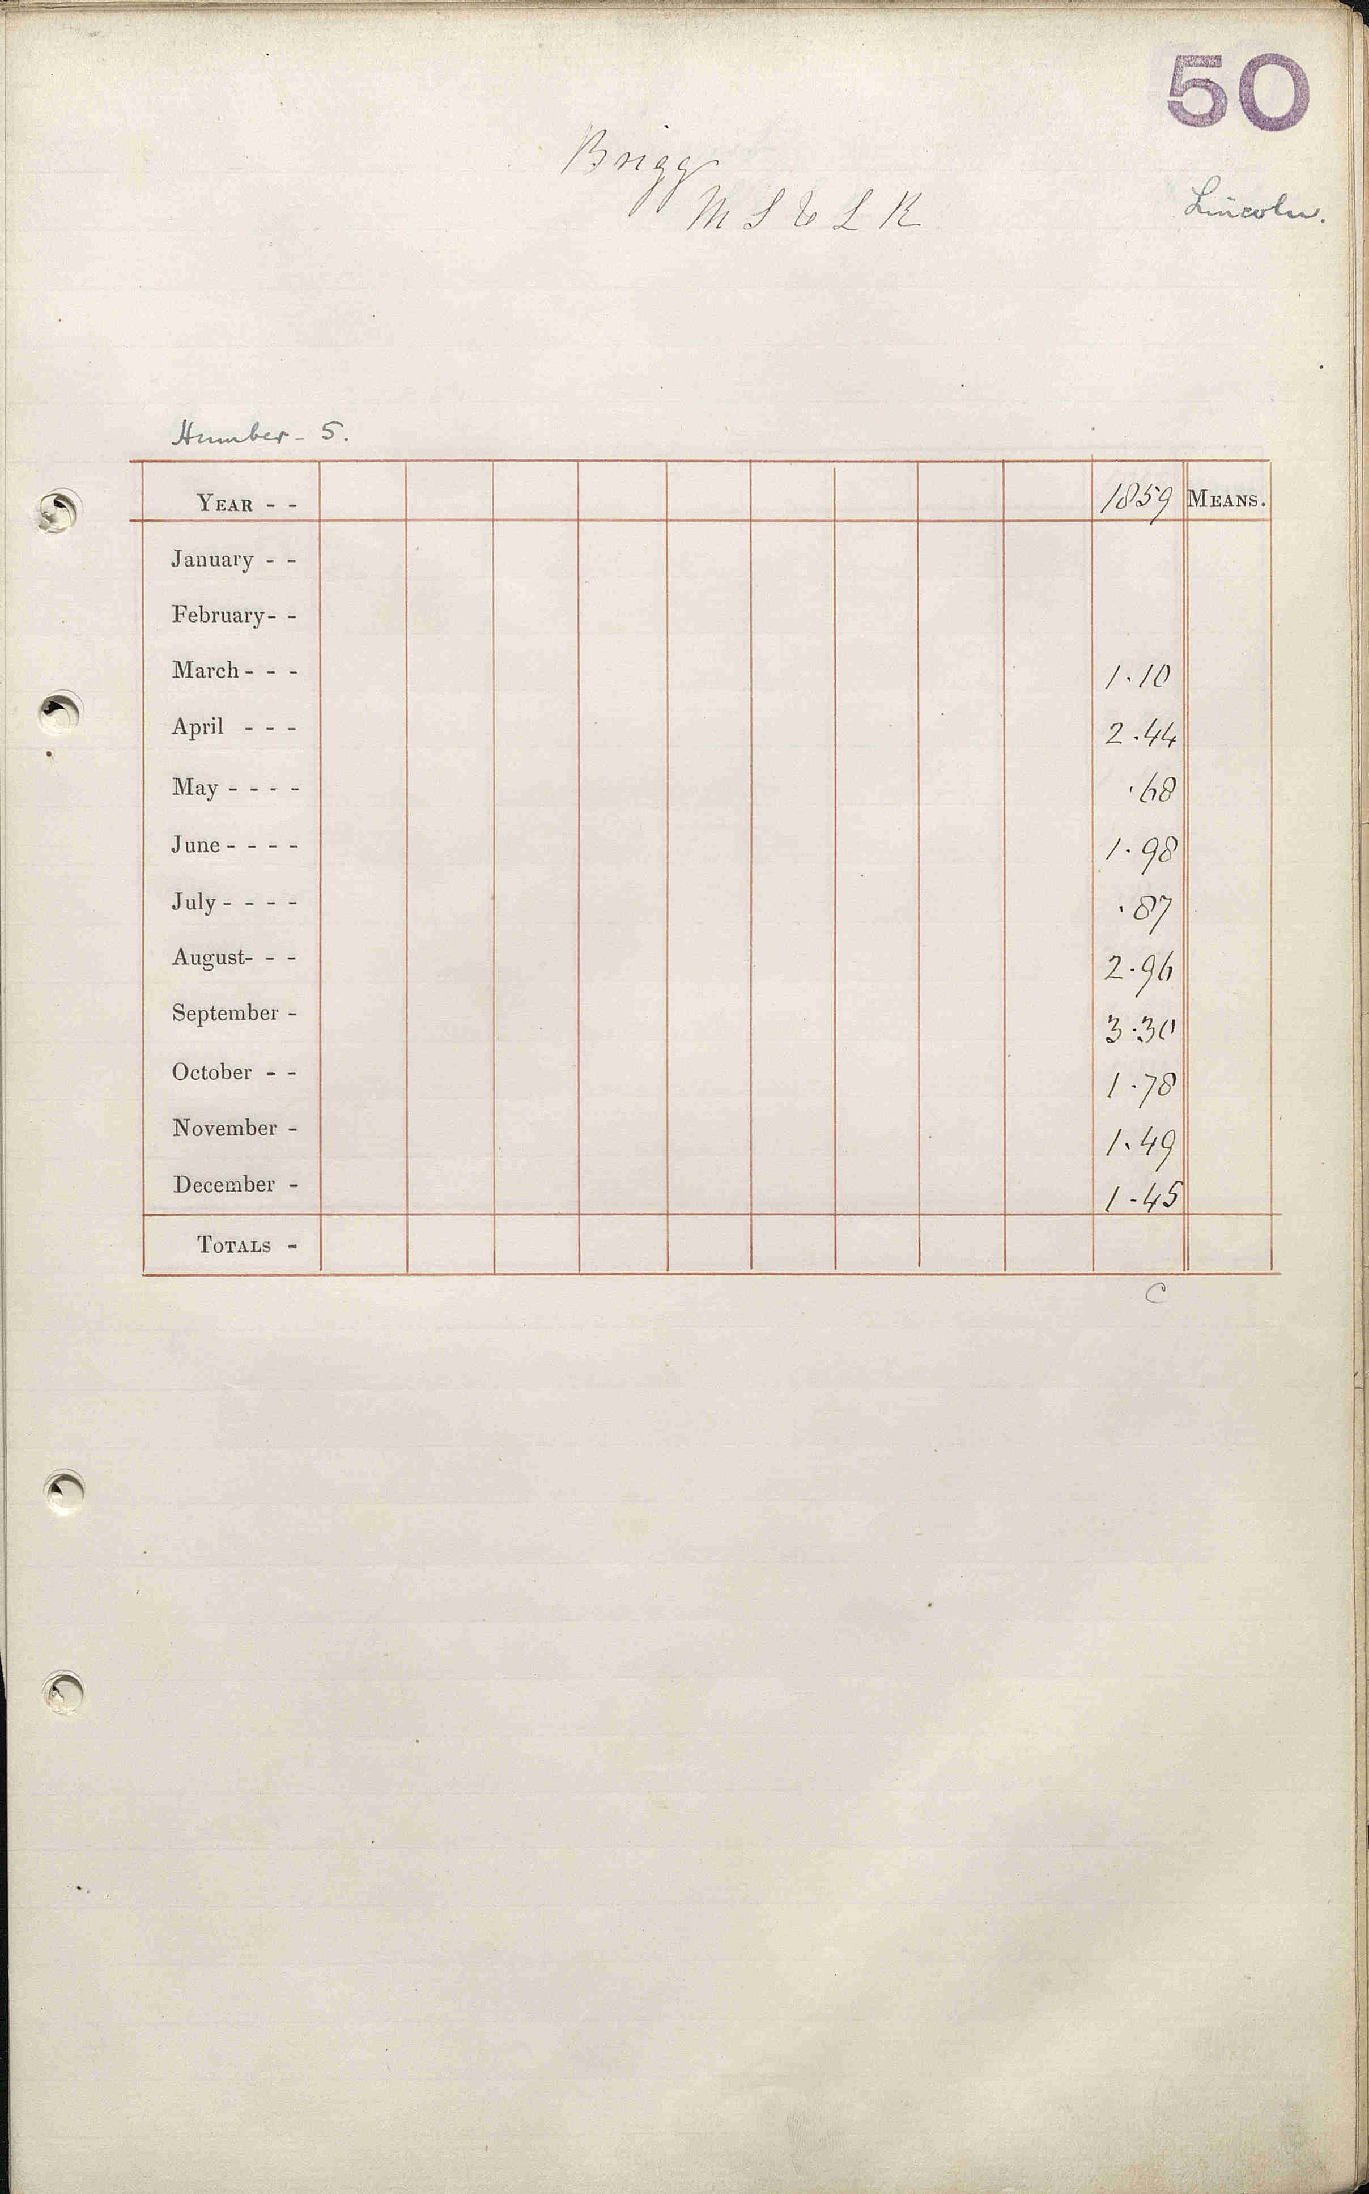 50
Brigg
M S & L R
Lincoln.
Humber - 5.
YEAR - - 1859 MEANS.
January - -
February - -
March - - - 1.10
April - - - 2.44
May - - - - .68
June - - - - 1.98
July - - - - .87
August - - - 2.96
September - 3.30
October - - 1.78
November - 1.49
December - 1.45
TOTALS -
C